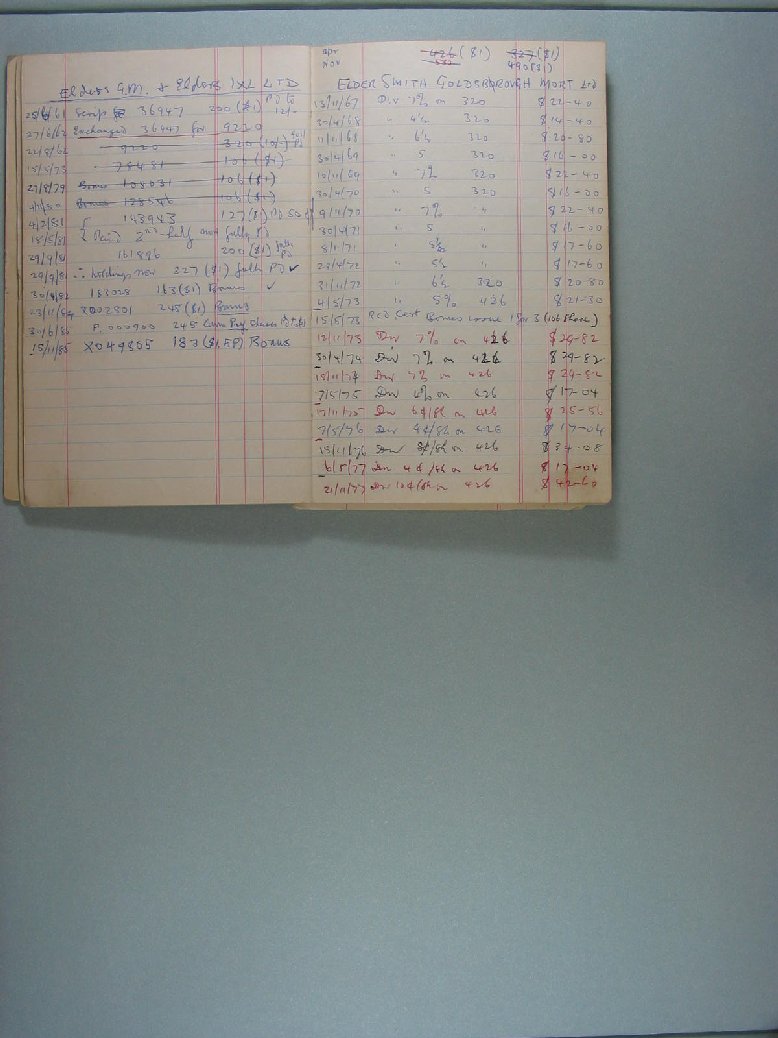 Elders G.M. + Elders IXL LTD
Scrip 36947 200 ($1) PD to 12/-
27/6/62 Exchanged 36947 for 9220
22/8/62 9220 320
15/5/73 78431 106 ($1)
27/8/79 Bonus 108031 106 ($1)
Bonus 128546 106 ($1)
4/2/81 143943 127 ($1) PD 50
{ Paid 2nd half now fully PD
29/9/81 161896 200 ($1) fully PD
29/9/81 ∴ holdings now 227 ($1) fully PD ✓
183028 183 ($1) Bonus ✓
23/11/84 2002301 245 ($1) Bonus
30/6/85 P.000900 245
15/11/85 X049805 183 ($1 FP) Bonus
Apr 426 ($1) 327 ($1)
Nov 532 490 ($1)
ELDER SMITH GOLDSBOROUGH MORT LTD
13/11/67 Div 7% on 320 $22-40
30/4/68 " 4½ 320 $14-40
11/11/68 " 6½ 320 $20-80
30/4/69 " 5 320 $16-00
10/11/69 " 7% 320 $22-40
30/4/70 " 5 320 $16-00
9/11/70 " 7% " $22-40
30/4/71 " 5 " $16-00
8/11/71 " 5½ " $17-60
28/4/72 " 5½ " $17-60
" 6½ 320 $20-80
4/5/73 " 5% 426 $21-30
15/5/73 Rec Cert Bonus issue 1 for 3 (106 Shares)
12/11/73 Div 7% on 426 $29-82
30/4/74 Div 7% on 426 $29-82
Div 7% on 426 $29-82
7/5/75 Div 4% on 426 $17-04
17/11/75 Div 6¢/Sh on 426 $25-56
7/5/76 Div 4¢/Sh on 426 $17-04
15/11/76 Div 8¢/Sh on 426 $34-08
6/5/77 Div 4¢/Sh on 426 $17-04
21/11/77 Div 10¢/Sh on 426 $42-60